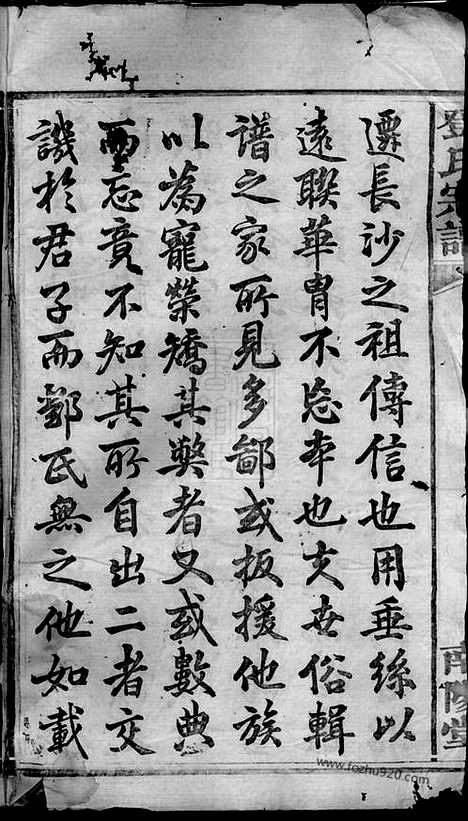 鄧氏宗譜
南陽堂
遷長沙之祖傳信也用垂絲以
遠聯華胄不忘本也夫世俗輯
譜之家所見多鄙或扳援他族
以為寵榮矯其獘者又或數典
而忘竟不知其所自出二者交
譏於君子而鄧氏無之他如載
www.fozhu920.com